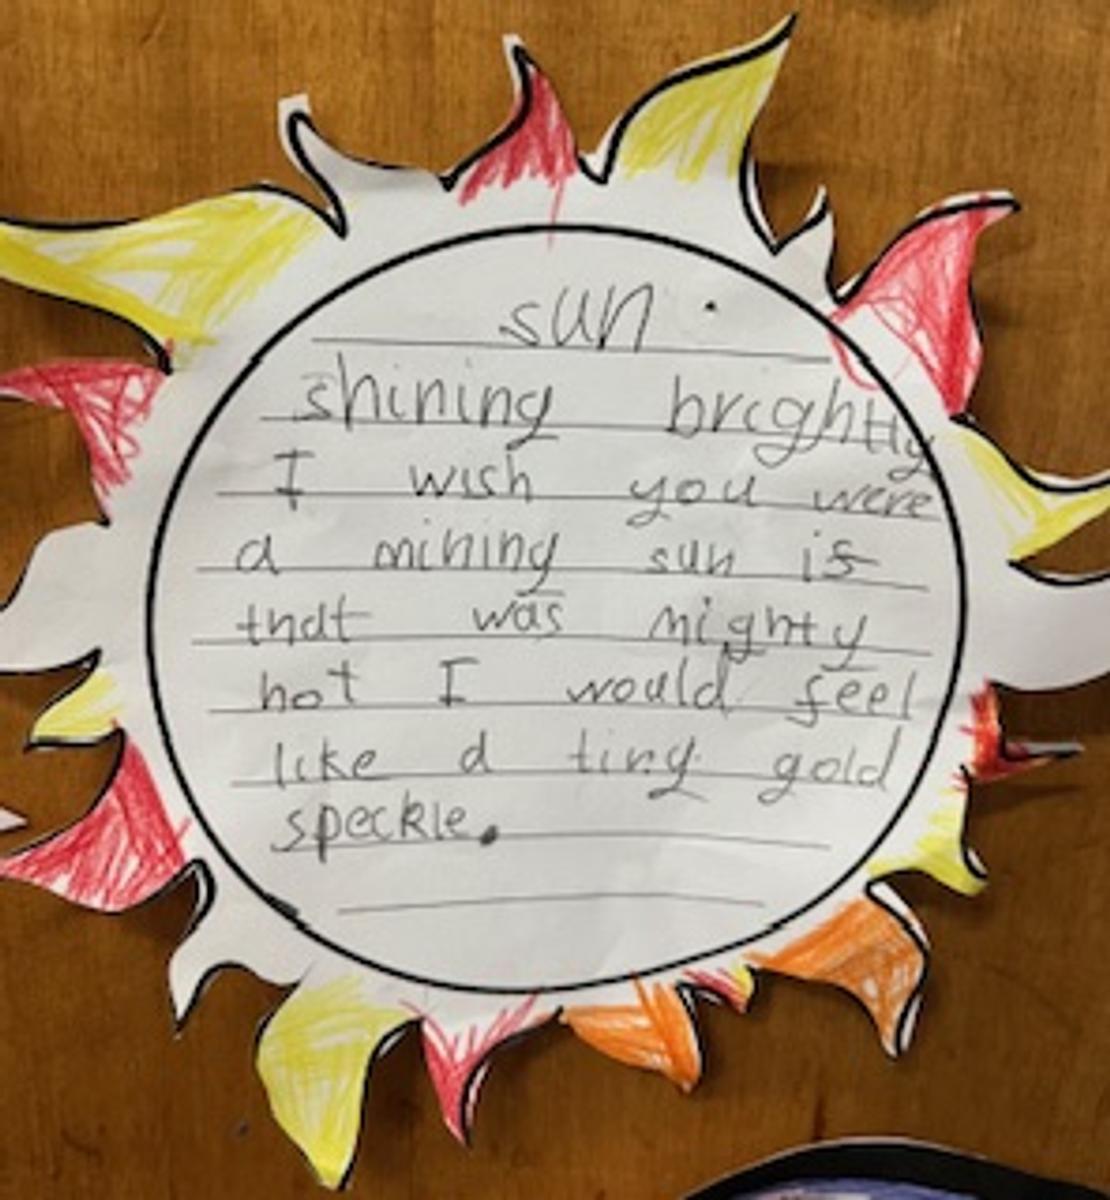 sun.
shining brightly
I wish you were
a mining sun is
that was mighty
hot I would feel
like a tiny gold
speckle.